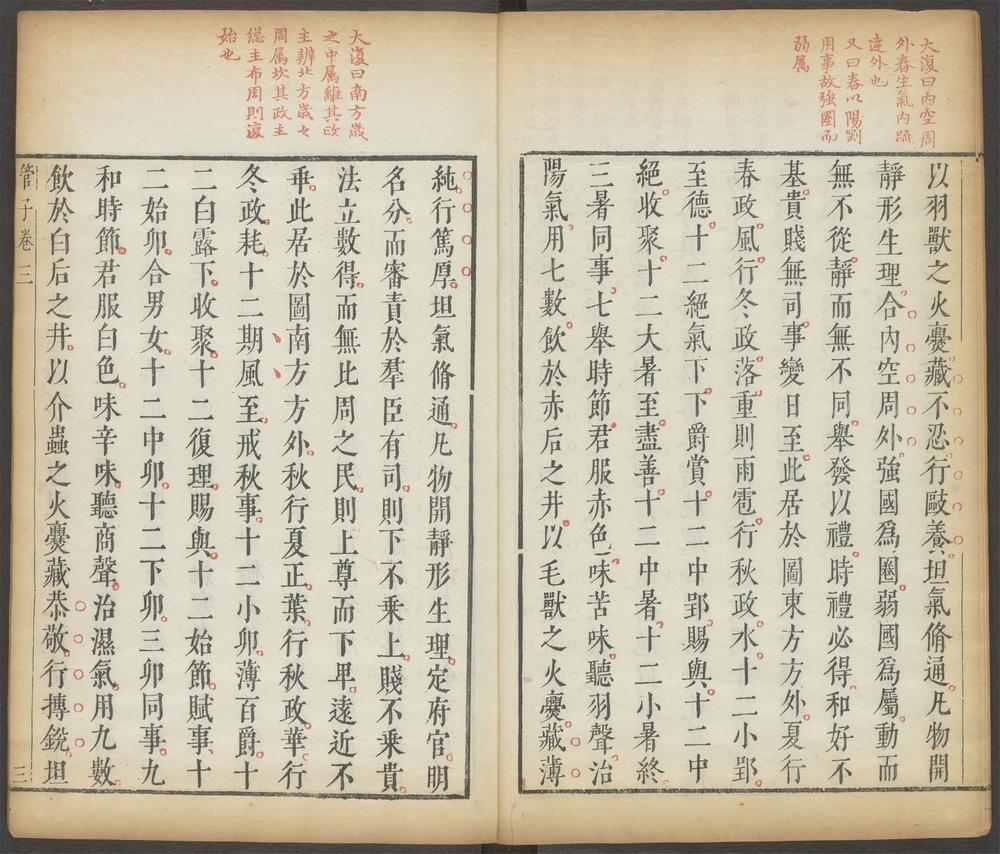 大復曰內空周
外春生氣內疏
達外也
又曰春以陽劉
用事故強圈而
弱属
以羽獸之火爨藏不忍行歐養坦氣脩通凡物開
靜形生理合內空周外強國爲圈弱國爲屬動而
無不從靜而無不同舉發以禮時禮必得和好不
基貴賤無司事變日至此居於圖東方方外夏行
春政風行冬政落重則雨雹行秋政水十二小郢
至德十二絕氣下下爵賞十二中郢賜與十二中
絕收聚十二大暑至盡善十二中暑十二小暑終
三暑同事七舉時節君服赤色味苦味聽羽聲治
陽氣用七數飲於赤后之井以毛獸之火爨藏薄
大復曰南方歲
之中属離其政
主辨北方歲之
周属坎其政主
総主布周則復
始也
純行篤厚坦氣脩通凡物開靜形生理定府官明
名分而審責於羣臣有司則下不乘上賤不乘貴
法立數得而無比周之民則上尊而下卑遠近不
乖此居於圖南方方外秋行夏正葉行秋政華行
冬政耗十二期風至戒秋事十二小卯薄百爵十
二白露下收聚十二復理賜與十二始節賦事十
二始卯合男女十二中卯十二下卯三卯同事九
和時節君服白色味辛味聽商聲治濕氣用九數
飲於白后之井以介蟲之火爨藏恭敬行搏銳坦
管子卷三
三